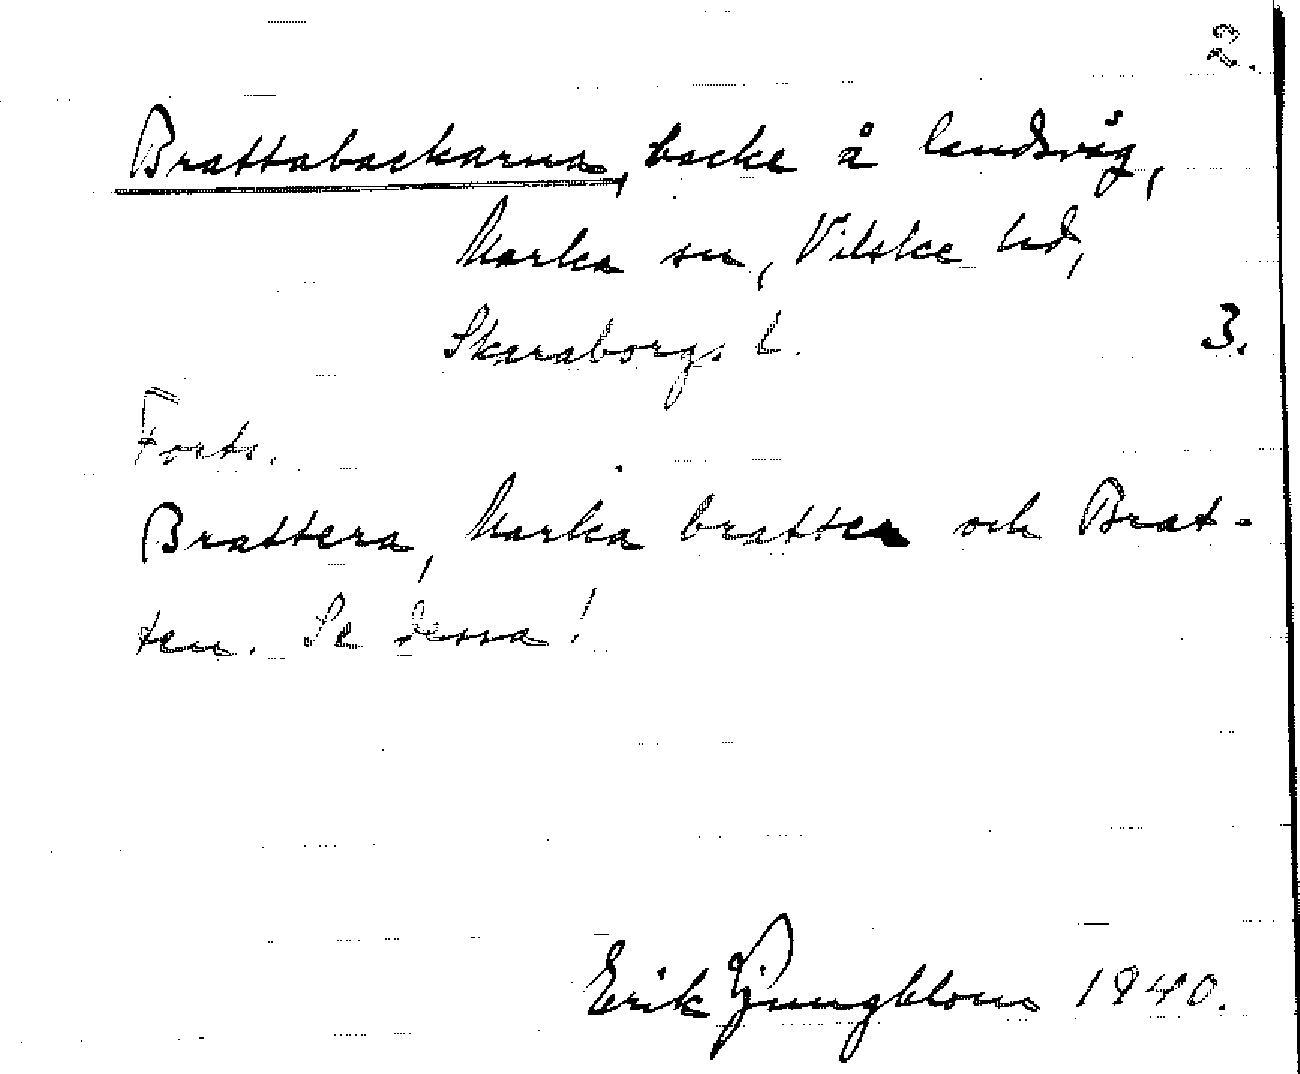 2.
Brattabackarna, backe å landsväg,
Marka sn, Vilske hd,
Skaraborgs l.
3.
Forts.
Brattera, Marka bratter och Brat-
ten. Se dessa!
Erik Ljungblom 1940.